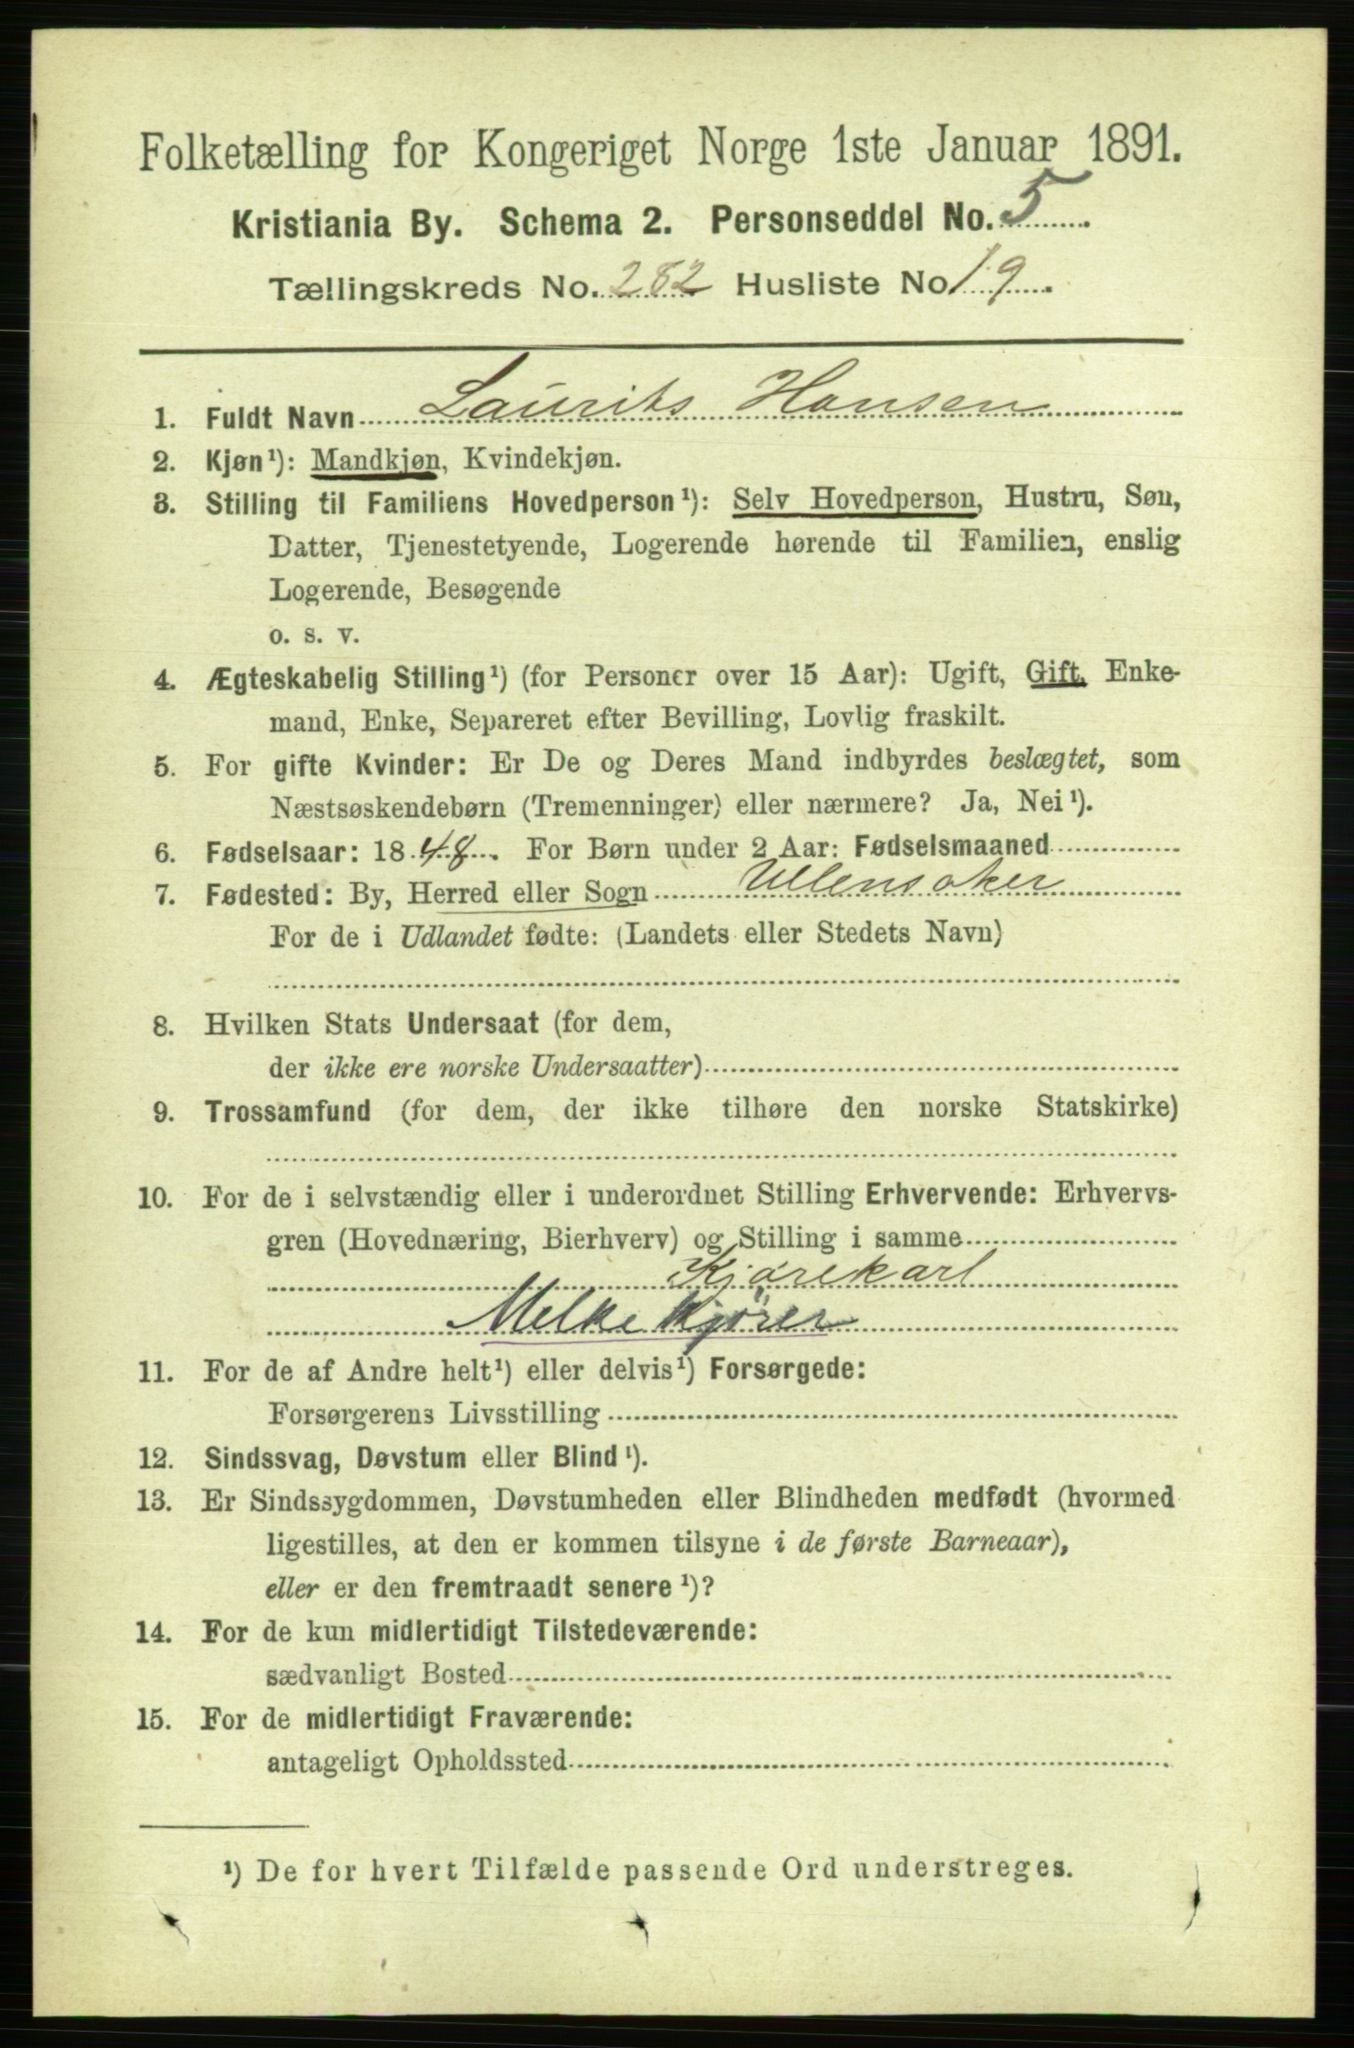 Folketælling for Kongeriget Norge 1ste Januar 1891.
Kristiania By. Schema 2. Personseddel No. 5
Tællingskreds No. 282 Husliste No 19
1. Fuldt Navn Laurits Hansen
2. Kjøn¹): Mandkjøn, Kvindekjøn.
3. Stilling til Familiens Hovedperson¹): Selv Hovedperson, Hustru, Søn,
Datter, Tjenestetyende, Logerende hørende til Familien, enslig
Logerende, Besøgende
o. s. v.
4. Ægteskabelig Stilling¹) (for Personer over 15 Aar): Ugift, Gift, Enke-
mand, Enke, Separeret efter Bevilling, Lovlig fraskilt.
5. For gifte Kvinder: Er De og Deres Mand indbyrdes beslægtet, som
Næstsøskendebørn (Tremenninger) eller nærmere? Ja, Nei¹).
6. Fødselsaar: 1848. For Børn under 2 Aar: Fødselsmaaned
7. Fødested: By, Herred eller Sogn Ullensaker
For de i Udlandet fødte: (Landets eller Stedets Navn)
8. Hvilken Stats Undersaat (for dem,
der ikke ere norske Undersaatter)
9. Trossamfund (for dem, der ikke tilhøre den norske Statskirke)
10. For de i selvstændig eller i underordnet Stilling Erhvervende: Erhvervs-
gren (Hovednæring, Bierhverv) og Stilling i samme
Kjørekarl
Melkekjører
11. For de af Andre helt¹) eller delvis¹) Forsørgede:
Forsørgerens Livsstilling
12. Sindssvag, Døvstum eller Blind¹).
13. Er Sindssygdommen, Døvstumheden eller Blindheden medfødt (hvormed
ligestilles, at den er kommen tilsyne i de første Barneaar),
eller er den fremtraadt senere¹)?
14. For de kun midlertidigt Tilstedeværende:
sædvanligt Bosted
15. For de midlertidigt Fraværende:
antageligt Opholdssted
¹) De for hvert Tilfælde passende Ord understreges.